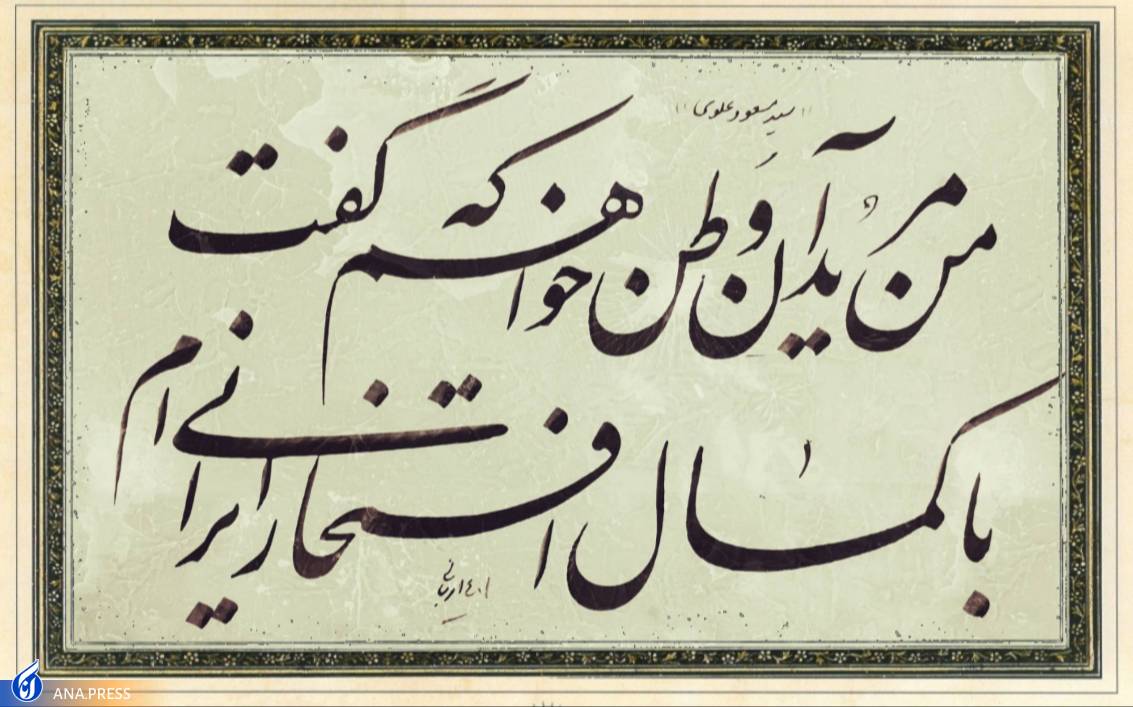 «سید مسعود علوی»
من مرید آن وطن خواهم که گفت
با کمال افتخار ایرانی ام
ANA.PRESS